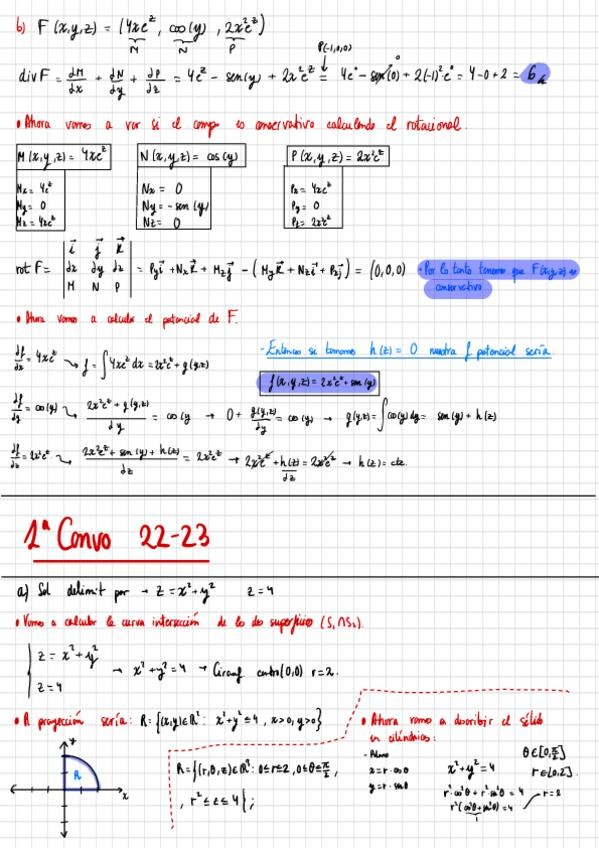 b) F(x,y,z) = (4xe^z, cos(y), 2x²e^z)
M N P
P(-1,0,0)
div F = dM/dx + dN/dy + dP/dz = 4e^z - sen(y) + 2x²e^z = 4e^0 - sen(0) + 2(-1)²e^0 = 4-0+2 = 6
0
• Ahora vamos a ver si el campo es conservativo calculando el rotacional.
M(x,y,z) = 4xe^z N(x,y,z) = cos(y) P(x,y,z) = 2x²e^z
Mx = 4e^z Nx = 0 Px = 4xe^z
My = 0 Ny = -sen(y) Py = 0
Mz = 4xe^z Nz = 0 Pz = 2x²e^z
i j k
rot F = dx dy dz = Py i + Nx k + Mz j - (My k + Nz i + Px j) = (0,0,0) - Por lo tanto tenemos que F(x,y,z) es
M N P conservativo
• Ahora vamos a calcular el potencial de F.
df/dx = 4xe^z → f = ∫4xe^z dx = 2x²e^z + g(y,z)
- Entonces si tomamos h(z) = 0 nuestra f potencial sería
f(x,y,z) = 2x²e^z + sen(y)
df/dy = cos(y) → 2x²e^z + g(y,z)/dy = cos(y) → 0 + g(y,z)/dy = cos(y) → g(y,z) = ∫cos(y)dy = sen(y) + h(z)
df/dz = 2x²e^z → 2x²e^z + sen(y) + h(z)/dz = 2x²e^z → 2x²e^z + h(z)/dz = 2x²e^z → h(z) = cte.
1ª Convo 22-23
a) Sol delimit por → z = x²+y² z = 4
• Vamos a calcular la curva intersección de las dos superficies (S₁∩S₂).
z = x²+y²
z = 4
→ x²+y² = 4 → Circunf centro(0,0) r=2.
• R proyección sería: R = {(x,y)∈R²: x²+y² ≤ 4, x>0, y>0}
y
R
x
R = {(r,θ,z)∈R³: 0≤r≤2, 0≤θ≤π/2,
, r² ≤ z ≤ 4};
• Ahora vamos a describir el sólido
en cilíndricas:
x = r·cosθ
y = r·senθ
x²+y² = 4
r²cos²θ + r²sen²θ = 4
r²(cos²θ+sen²θ) = 4
1
r=2
θ∈[0,π/2]
r∈[0,2].